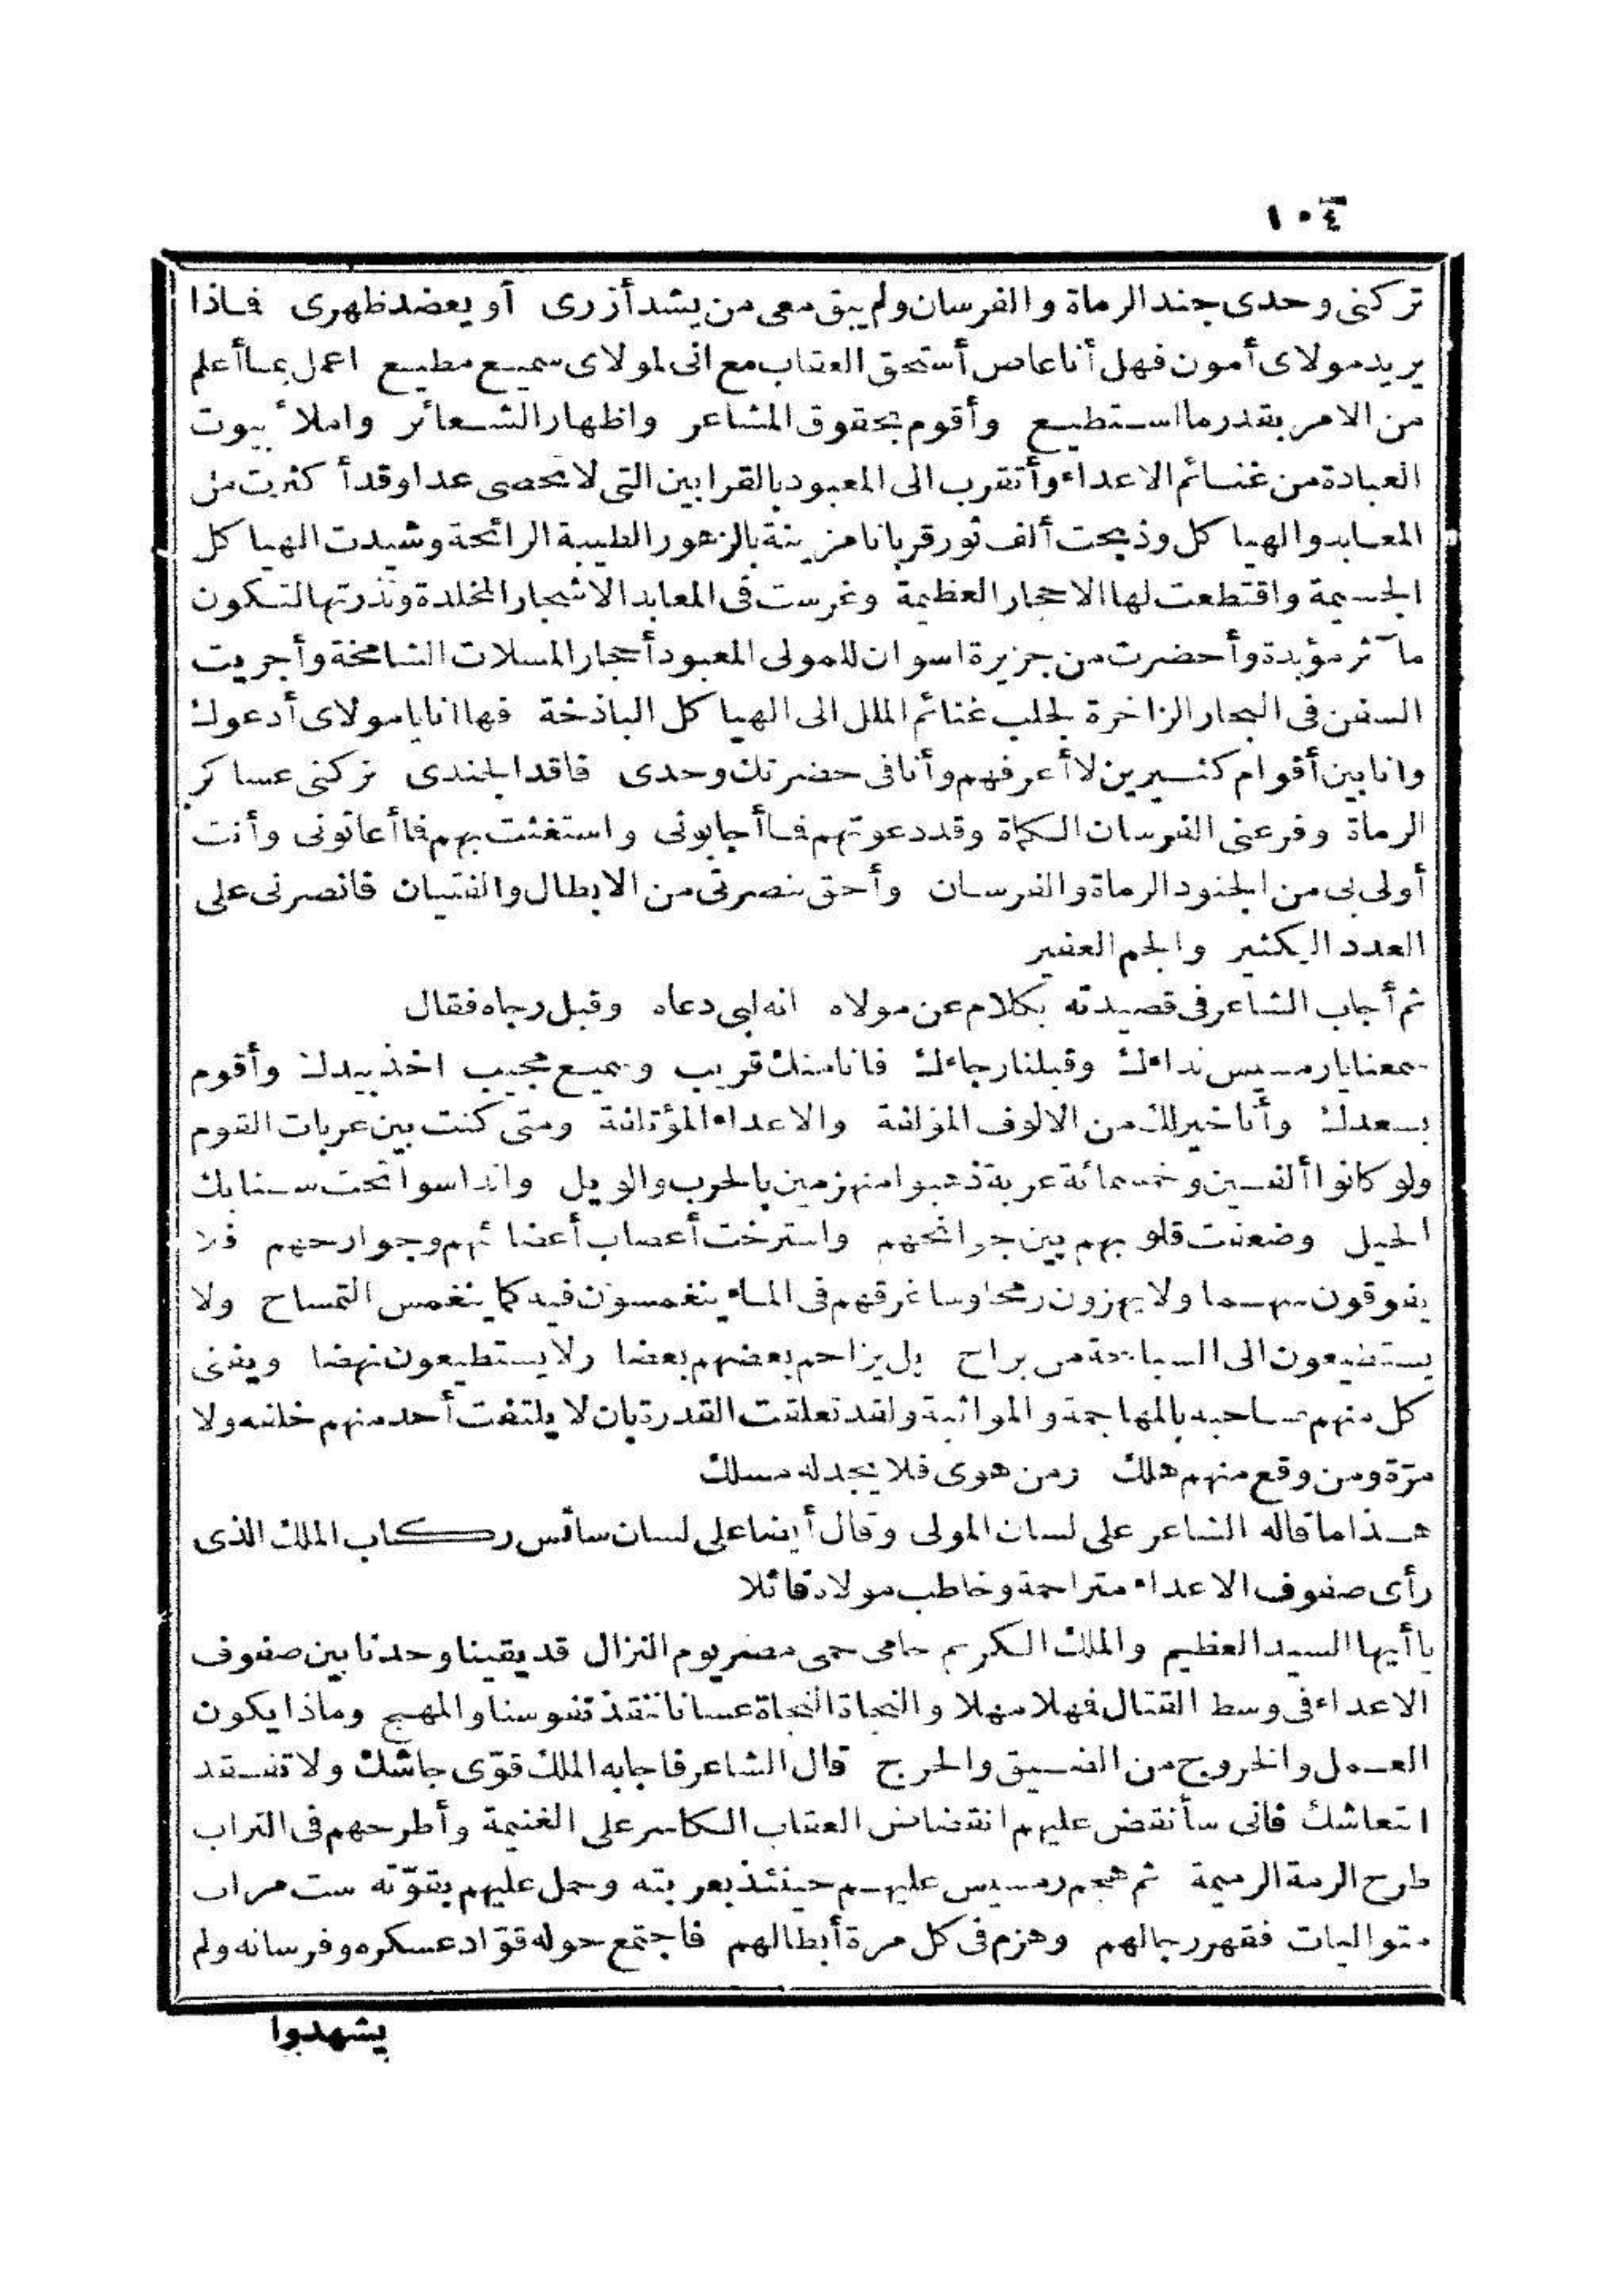 ١٠٤
تركنى وحدى جند الرماة والفرسان ولم يبق معى من يشد أزرى أو يعضد ظهرى فماذا
يريد مولاى أمون فهل أنا عاص أستحق العقاب مع انى لمولاى سميع مطيع اعمل بما أعلم
من الامر بقدر ما استطيع وأقوم بحقوق المشاعر واظهار الشعائر واملأ بيوت
العبادة من غنائم الاعداء وأتقرب الى المعبود بالقرابين التى لا تحصى عدا وقد أكثرت من
المعابد والهياكل وذبحت ألف ثور قربانا مزينة بالزهور الطيبة الرائحة وشيدت الهياكل
الجسيمة واقتطعت لها الاحجار العظيمة وغرست فى المعابد الاشجار المخلدة ونذرتها لتكون
مآثر مؤبدة وأحضرت من جزيرة اسوان للمولى المعبود أحجار المسلات الشامخة وأجريت
السفن فى البحار الزاخرة لجلب غنائم الملل الى الهياكل الباذخة فها انا يا مولاى أدعوك
وانا بين أقوام كثيرين لا أعرفهم وأنا فى حضرتك وحدى فاقد الجندى تركنى عساكر
الرماة وفر عنى الفرسان الكماة وقد دعوتهم فما أجابونى واستغثت بهم فما أعانونى وأنت
أولى بى من الجنود الرماة والفرسان وأحق بنصرتى من الابطال والفتيان فانصرنى على
العدد الكثير والجم الغفير
ثم أجاب الشاعر فى قصيدته بكلام عن مولاه انه لبى دعاه وقبل رجاه فقال
سمعنا يا رمسيس نداءك وقبلنا رجاءك فانا منك قريب وسميع مجيب اخذ بيدك وأقوم
بسعدك وأنا خير لك من الالوف المؤلفة والاعداء المؤتلفة ومتى كنت بين عربات القوم
ولو كانوا ألفين وخمسمائة عربة ذهبوا منهزمين بالحرب والويل وانداسوا تحت سنابك
الخيل وضعفت قلوبهم بين جوانحهم واسترخت أعصاب أعضائهم وجوارحهم فلا
يفوقون سهما ولا يهزون رمحا وسأغرقهم فى الماء ينغمسون فيه كما ينغمس التمساح ولا
يستطيعون الى السباحة من براح بل يزاحم بعضهم بعضا ولا يستطيعون نهضا ويفنى
كل منهم صاحبه بالمهاجمة والمواثبة ولقد تعلقت القدرة بان لا يلتفت أحد منهم خلفه ولا
مرّة ومن وقع منهم هلك ومن هوى فلا يجد له مسلك
هذا ما قاله الشاعر على لسان المولى وقال أيضا على لسان سائس ركاب الملك الذى
رأى صفوف الاعداء متراحمة وخاطب مولاه قائلا
يا أيها السيد العظيم والملك الكريم حامى حمى مصر يوم النزال قد بقينا وحدنا بين صفوف
الاعداء فى وسط القتال فهلا مهلا والنجاة النجاة عسانا ننقذ نفوسنا والمهج وماذا يكون
العمل والخروج من الضيق والحرج قال الشاعر فاجابه الملك قوّى جاشك ولا تفقد
انتعاشك فانى سأنقض عليهم انقضاض العقاب الكاسر على الغنيمة وأطرحهم فى التراب
طرح الرمة الرميمة ثم هجم رمسيس عليهم حينئذ بعربته وحمل عليهم بقوّته ست مرات
متواليات فقهر رجالهم وهزم فى كل مرة أبطالهم فاجتمع حوله قوّاد عسكره وفرسانه ولم
يشهدوا